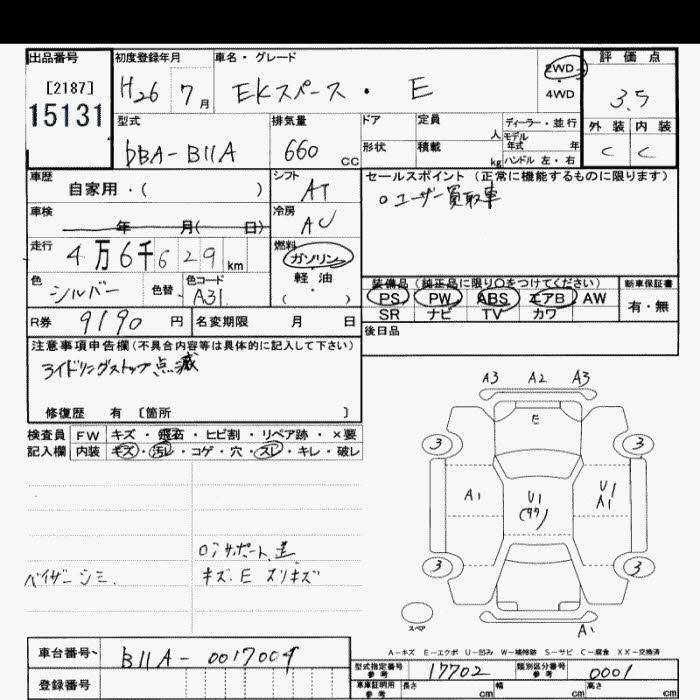 出品番号 初度登録年月 車名・グレード 2WD 評価点
[2187] H26 7月 EKスペース・ E 4WD 3.5
15131
型式 排気量 ドア 定員 人 ディーラー・並行 外装 内装
DBA-B11A 660 CC 形状 積載 kg モデル年式 年 C C
ハンドル 左・右
車歴 自家用・( ) シフト AT セールスポイント(正常に機能するものに限ります)
○ユーザー買取車
車検 年 月( 日) 冷房 AC
走行 4万6千629km 燃料 ガソリン
軽油
( )
色 シルバー 色替 色コード A31
装備品(純正品に限り○をつけてください) 新車保証書
PS PW ABS エアB AW 有・無
SR ナビ TV カワ
R券 9190円 名変期限 月 日 後日品
注意事項申告欄(不具合内容等は具体的に記入して下さい)
アイドリングストップ点滅
修復歴 有 [箇所 ]
検査員 FW キズ・飛石・ヒビ割・リペア跡・×要
記入欄 内装 キズ・汚レ・コゲ・穴・スレ・キレ・破レ
A3 A2 A3
E
3 3
A1 U1 U1
A1
3 3
スペア
A1
ロアサポート
バイザーシミ. キズ.E スリキズ
A−キズ E−エクボ U−凹み W−補修跡 S−サビ C−腐食 XX−交換済
車台番号 B11A-0017009
型式指定番号 参考 17702 類別区分番号 参考 0001
登録番号 車庫証明用 参考 長さ cm 幅 cm 高さ cm